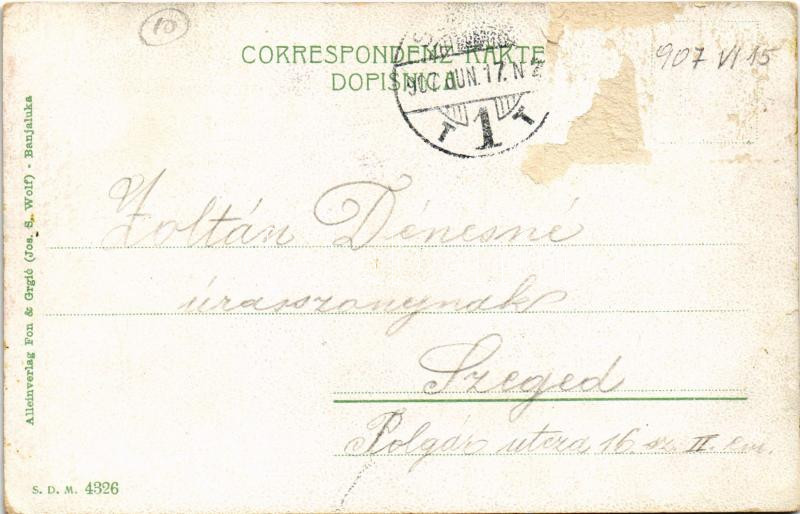 10
CORRESPONDENZ-KARTE
DOPISNICA
907 JUN. 17. N
T 1 T
907 VI 15
Alleinverlag Fon & Grgić (Jos. S. Wolf) - Banjaluka
Zoltán Dénesné
úrasszonynak
Szeged
Polgár utcza 16. sz. II. em.
S. D. M. 4326